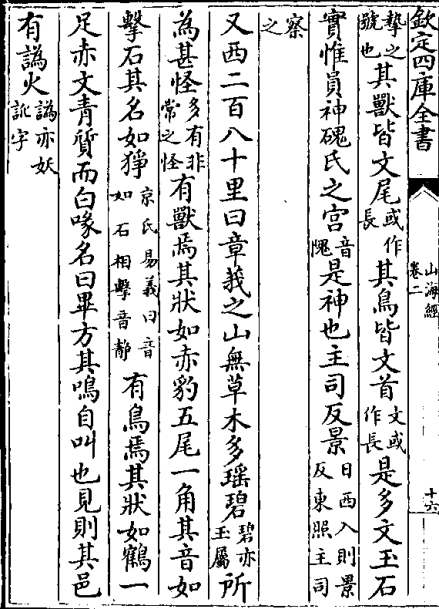 欽定四庫全書
山海經
卷二
十六
摯之號也其獸皆文尾或作長其鳥皆文首文或作長是多文玉石
實惟員神磈氏之宫音愧是神也主司反景日西入則景反東照主司
察之
又西二百八十里曰章莪之山無草木多瑶碧碧亦玉屬所
為甚怪多有非常之怪有獸焉其狀如赤豹五尾一角其音如
擊石其名如狰京氏易義曰音如石相擊音静有鳥焉其狀如鶴一
足赤文青質而白喙名曰畢方其鳴自叫也見則其邑
有譌火譌亦妖訛字